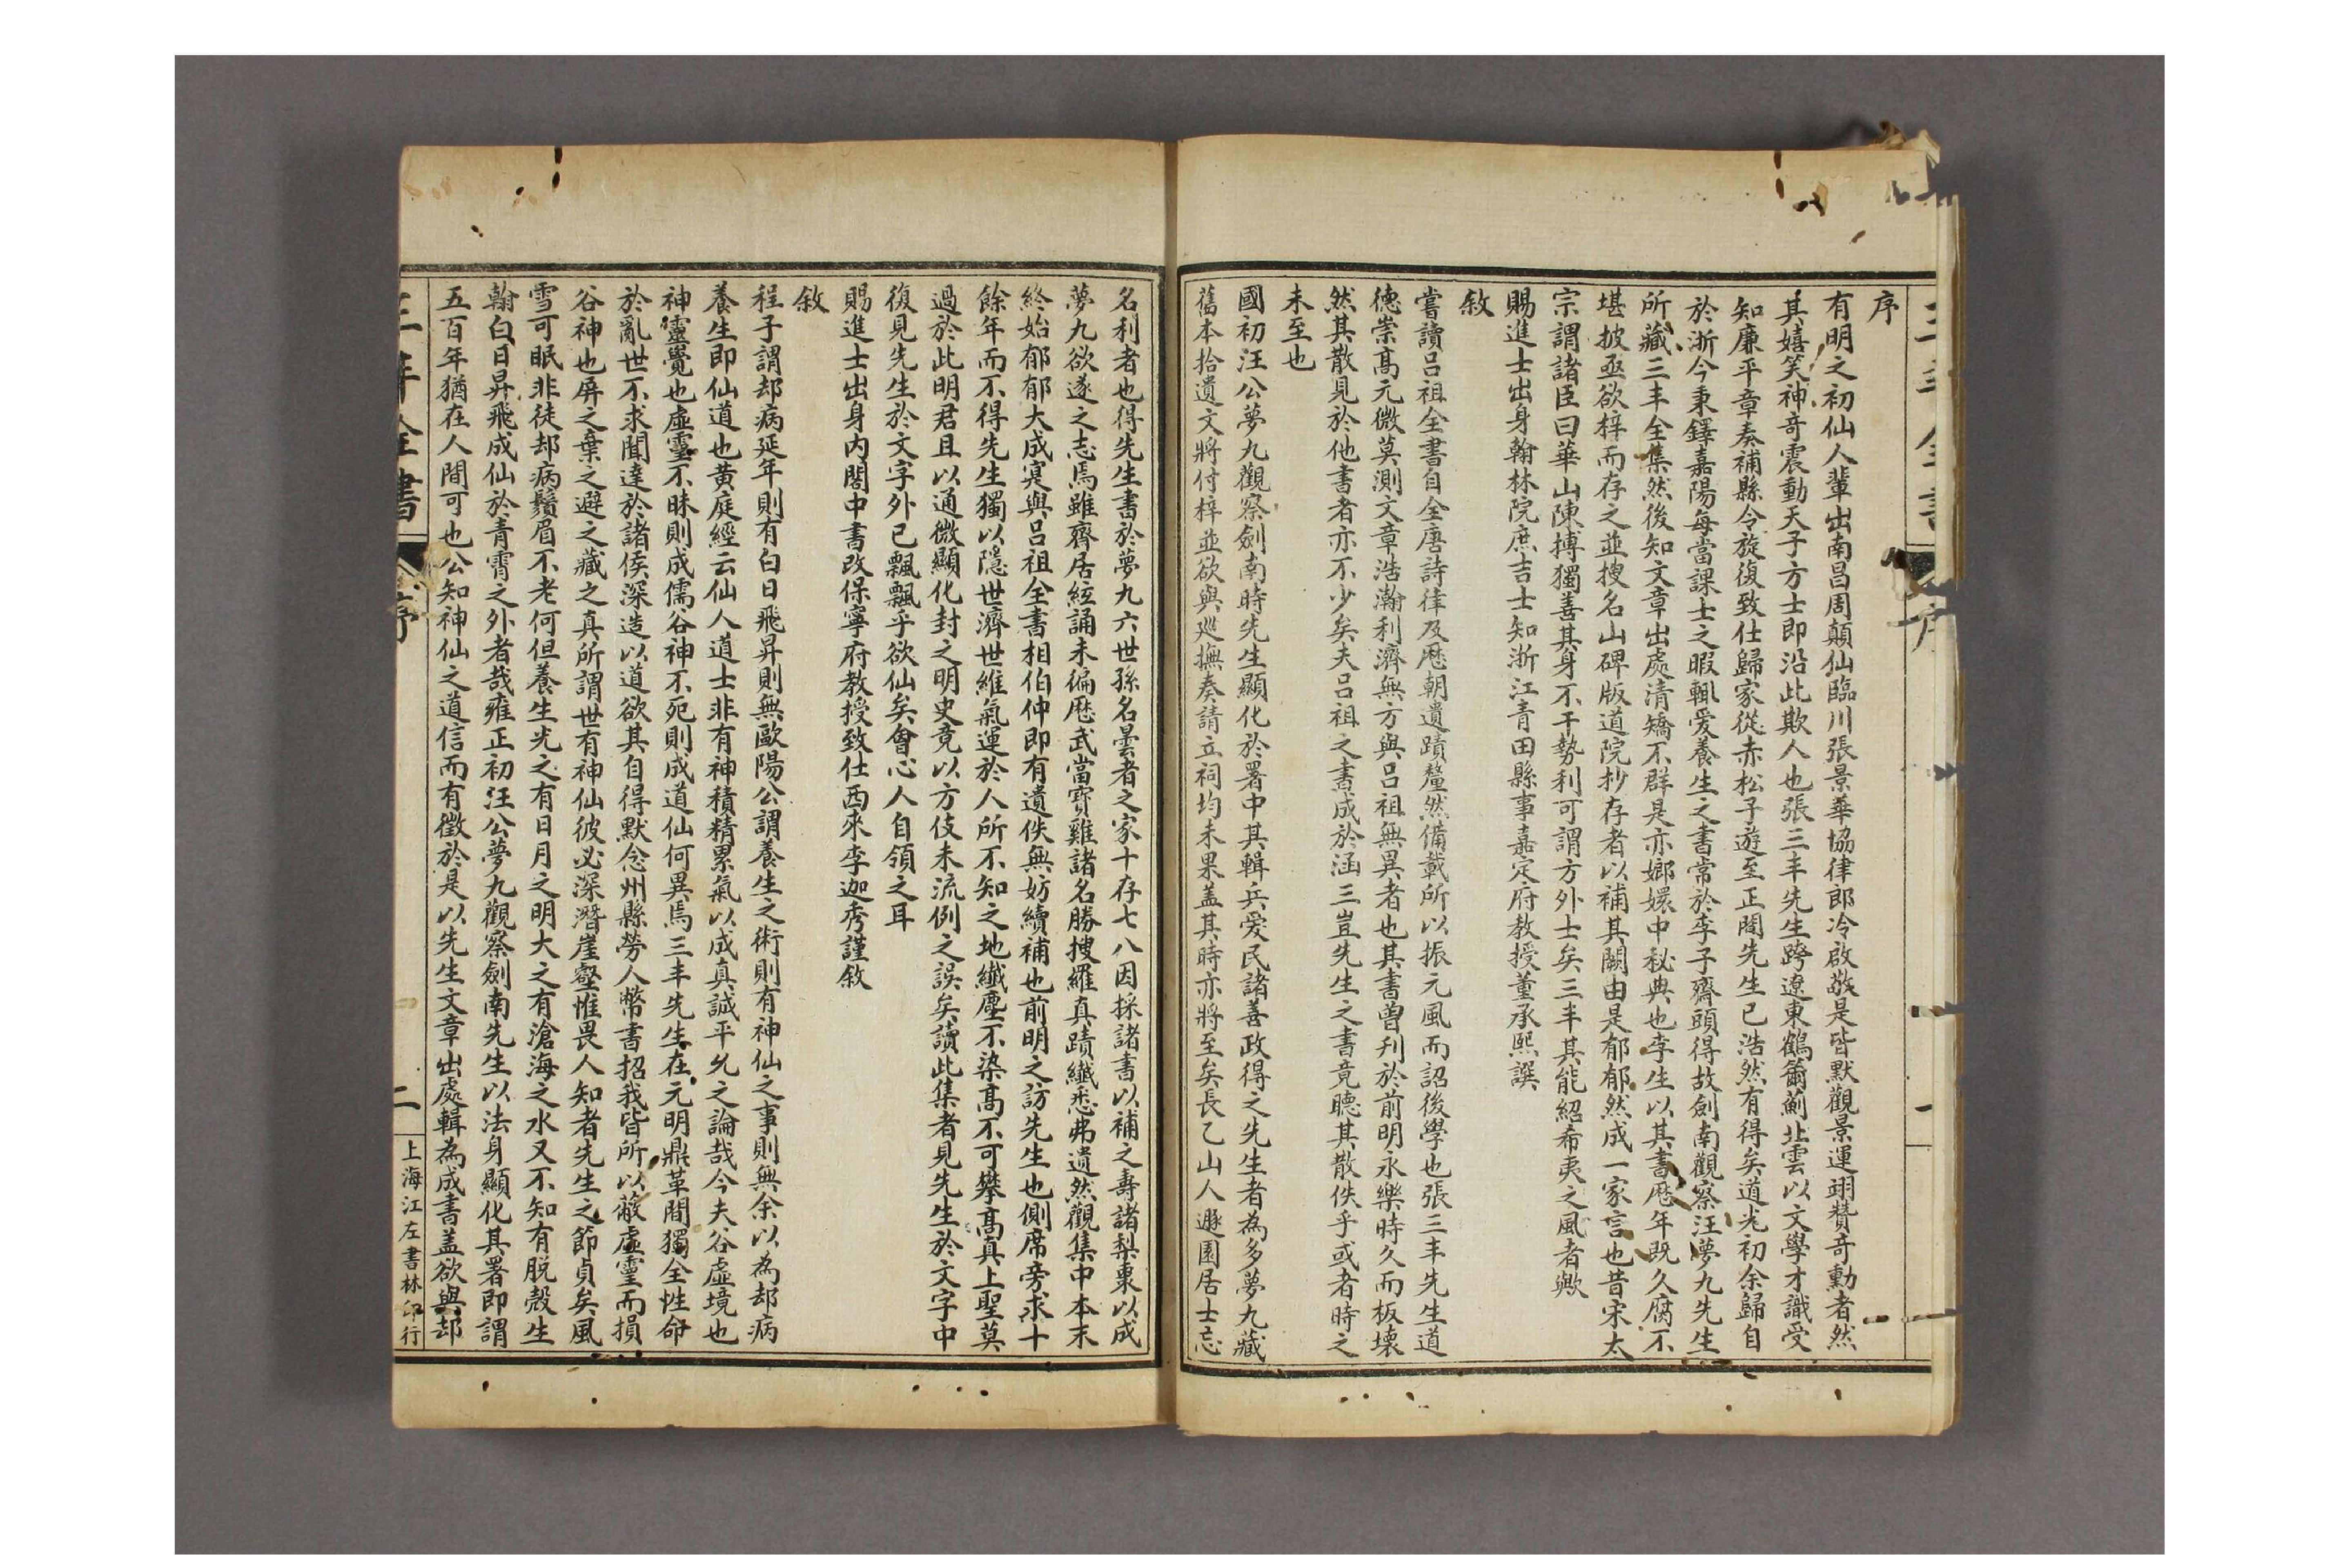 三丰全書
序
一
序
有明之初仙人輩出南昌周顛仙臨川張景華協律郎冷啟敬是皆默觀景運翊贊奇勳者然
其嬉笑神奇震動天子方士即沿此欺人也張三丰先生跨遼東鶴籥薊北雲以文學才識受
知廉平章奏補縣令旋復致仕歸家從赤松子遊至正間先生已浩然有得矣道光初余歸自
於浙今秉鐸嘉陽每當課士之暇輒爰養生之書常於李子齋頭得故劍南觀察汪夢九先生
所藏三丰全集然後知文章出處清矯不群是亦嫏嬛中秘典也李生以其書歷年既久腐不
堪披亟欲梓而存之並搜名山碑版道院抄存者以補其闕由是郁郁然成一家言也昔宋太
宗謂諸臣曰華山陳摶獨善其身不干勢利可謂方外士矣三丰其能紹希夷之風者歟
賜進士出身翰林院庶吉士知浙江青田縣事嘉定府教授董承熙譔
敘
嘗讀呂祖全書自全唐詩律及歷朝遺蹟釐然備載所以振元風而詔後學也張三丰先生道
德崇高元微莫測文章浩瀚利濟無方與呂祖無異者也其書曾刊於前明永樂時久而板壞
然其散見於他書者亦不少矣夫呂祖之書成於涵三豈先生之書竟聽其散佚乎或者時之
未至也
國初汪公夢九觀察劍南時先生顯化於署中其輯兵愛民諸善政得之先生者為多夢九藏
舊本拾遺文將付梓並欲與巡撫奏請立祠均未果蓋其時亦將至矣長乙山人遯園居士忘
名利者也得先生書於夢九六世孫名曇者之家十存七八因採諸書以補之壽諸梨棗以成
夢九欲遂之志焉雖齋居絃誦未徧歷武當寶雞諸名勝搜羅真蹟纖悉弗遺然觀集中本末
終始郁郁大成寔與呂祖全書相伯仲即有遺佚無妨續補也前明之訪先生也側席旁求十
餘年而不得先生獨以隱世濟世維氣運於人所不知之地纖塵不染高不可攀高真上聖莫
過於此明君且以通微顯化封之明史竟以方伎末流例之誤矣讀此集者見先生於文字中
復見先生於文字外已飄飄乎欲仙矣會心人自領之耳
賜進士出身内閣中書改保寧府教授致仕西來李迦秀謹敘
敘
程子謂却病延年則有白日飛昇則無歐陽公謂養生之術則有神仙之事則無余以為却病
養生即仙道也黃庭經云仙人道士非有神積精累氣以成真誠平允之論哉今夫谷虛境也
神靈覺也虛靈不昧則成儒谷神不死則成道仙何異焉三丰先生在元明鼎革間獨全性命
於亂世不求聞達於諸侯深造以道欲其自得默念州縣勞人幣書招我皆所以蔽虛靈而損
谷神也屏之棄之避之藏之真所謂世有神仙彼必深潛崖壑惟畏人知者先生之節貞矣風
雪可眠非徒却病鬚眉不老何但養生光之有日月之明大之有滄海之水又不知有脱殼生
翰白日昇飛成仙於青霄之外者哉雍正初汪公夢九觀察劍南先生以法身顯化其署即謂
五百年猶在人間可也公知神仙之道信而有徵於是以先生文章出處輯為成書蓋欲與却
三丰全書
序
二
上海江左書林印行